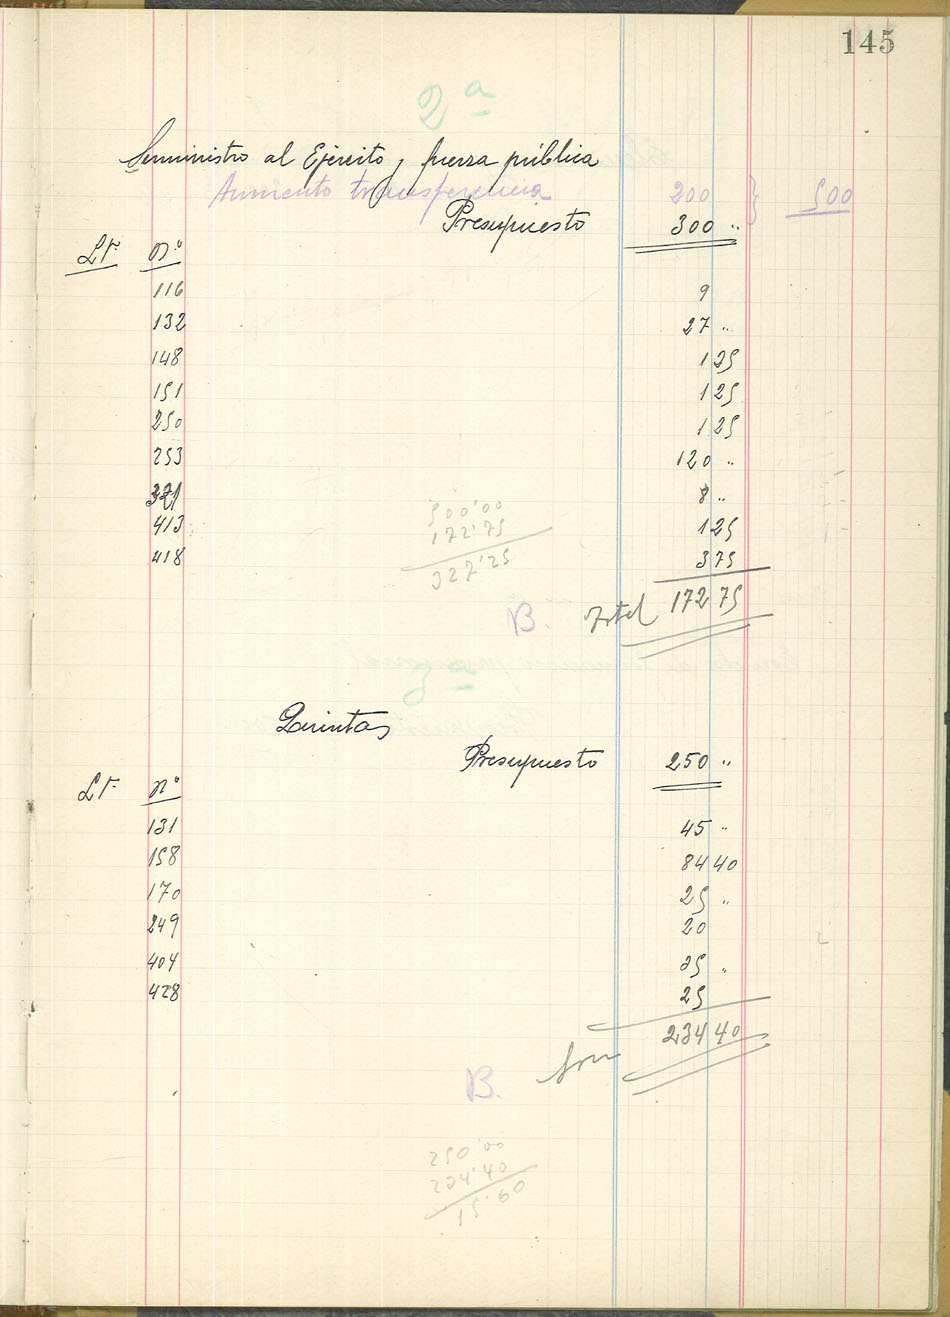 145
2ª
Suministro al Ejército y fuerza pública
Aumento transferencia 200 } 500
Presupuesto 300 "
Lt. Nº
116 9
132 27 "
148 1 25
151 1 25
250 1 25
253 120 "
321 8 "
413 1 25
418 3 75
500'00
172'75
327'25
B. Total 172 75
3ª
Quintas
Presupuesto 250 "
Lt. Nº
131 45 "
158 84 40
170 25 "
249 20
404 25 "
428 25
234 40
B.
250'00
234'40
15'60